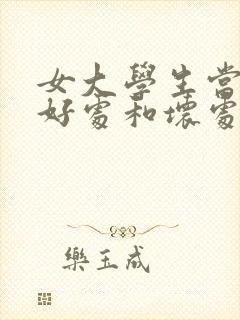 女大學生當
好處和壞處
樂玉成